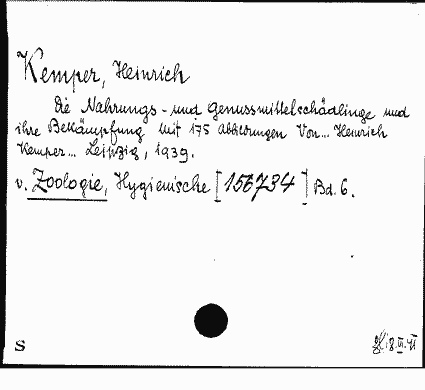 Kemper, Heinrich
Die Nahrungs- und Genussmittelschädlinge und
ihre Bekämpfung Mit 175 Abbildungen Von... Heinrich
Kemper... Leipzig, 1939.
v. Zoologie, Hygienische [156734] Bd. 6.
S